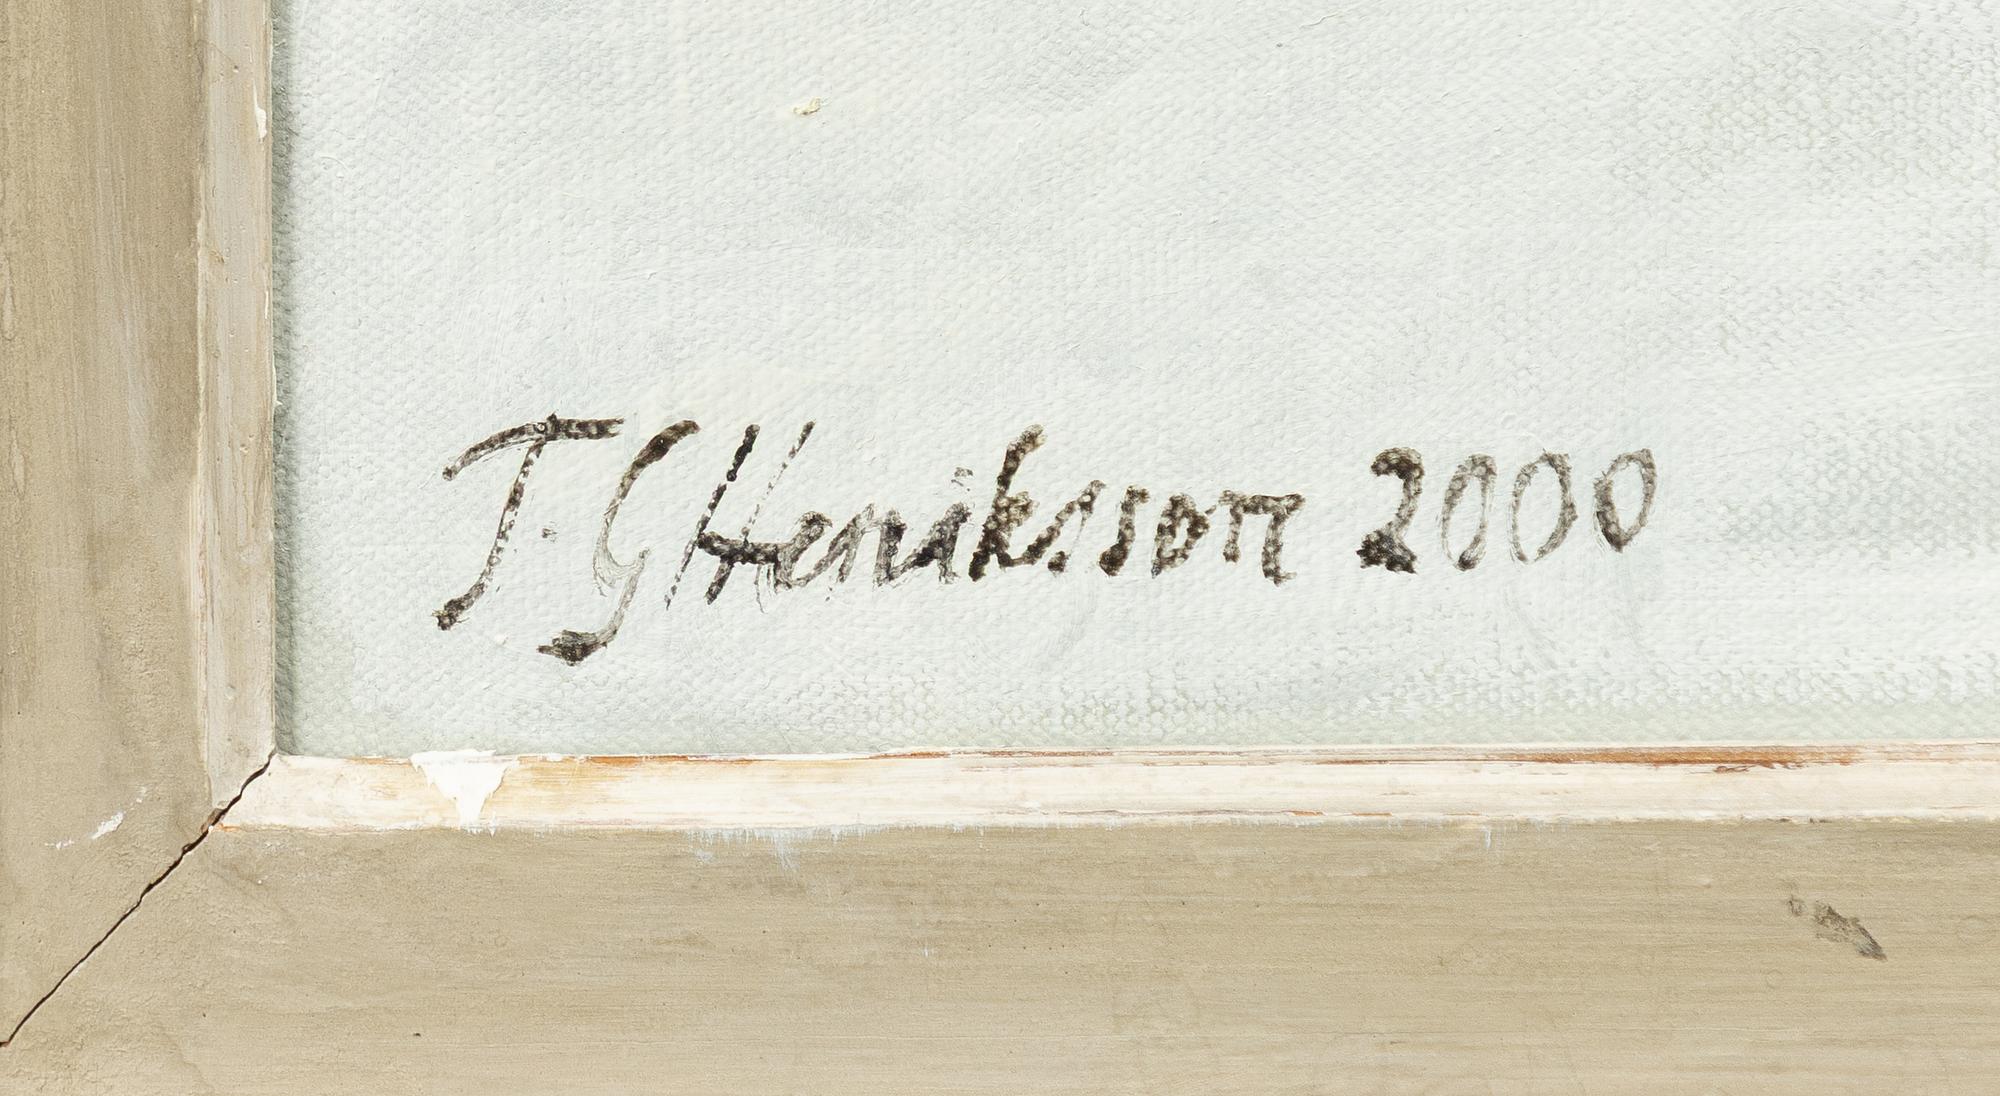 T. G Henriksson 2000